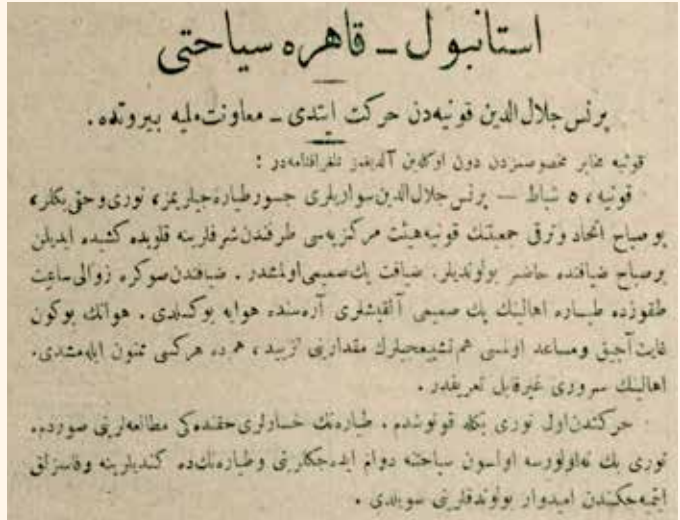 استانبول ـ قاهره سیاحتی
پرنس جلال الدین قونیه‌دن حرکت ایتدی ـ معاونت ملیه بیروتده .
قونیه مخابر مخصوصمزدن دون اوکلدین آلدیغمز تلغرافنامه‌در :
قونیه ، ٥ شباط — پرنس جلال الدین سواریلری جسور طیاره‌جیلریمز ، نوری و حقی بکلر ،
بو صباح اتحاد و ترقی جمعیتنك قونیه هیئت مرکزیه‌سی طرفندن شرفلرینه قلوبده کشیده ایدیلن
بر صباح ضیافتنده حاضر بولوندیلر . ضیافت پك صمیمی اولمشدر . ضیافتدن صوکره زوالی ساعت
طقوزده طیاره اهالینك پك صمیمی آلقیشلری آره‌سنده هوایه یوکسلدی . هوانك بوکون
غایت آچیق و مساعد اولمسی هم تشییعجیلرك مقدارینی تزیید ، هم‌ده هرکسی ممنون ایله‌مشدی .
اهالینك سروری غیر قابل تعریفدر .
حرکتدن اول نوری بکله قونوشدم . طیاره‌نك خسارلری حقنده‌کی مطالعه‌لرینی صوردم .
نوری بك نه اولورسه اولسون سیاحتنه دوام ایده‌جکلرینی و طیاره‌نك‌ده کندیلرینه وفاسزلق
ایتمیه‌جکندن امیدوار بولوندقلرینی سویلدی .